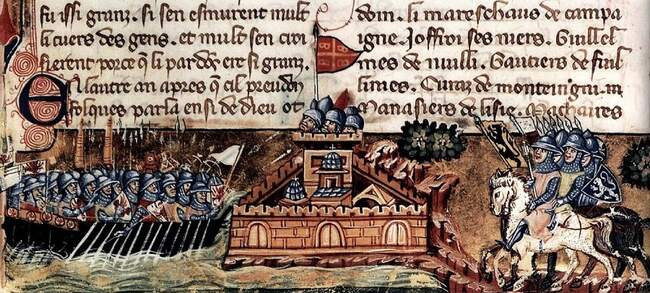 fu issi granz. si sen esmurent mult
li cuers des gens. et mult sen croi
sierent porce q̃ li pardōs ere si granz.
En lautre an apres q̃ cil preudon
folques parla ensi de dieu ot
dom. li mareschaus de campa
igne. Joffroi ses niers. Guillel
mes de nuilli. Gautiers de fuil
limes. Euraz de monteingni.
Manasiers de lisle. Machaires